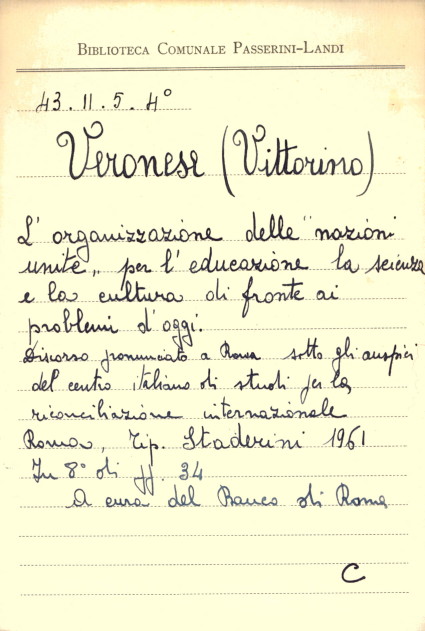 BIBLIOTECA COMUNALE PASSERINI-LANDI
43.II.5.4°
Veronese (Vittorino)
L'organizzazione delle "nazioni
unite" per l'educazione la scienza
e la cultura di fronte ai
problemi d'oggi.
Discorso pronunciato a Roma sotto gli auspici
del centro italiano di studi per la
riconciliazione internazionale
Roma, Tip. Staderini 1961
In 8° di pp. 34
A cura del Banco di Roma
C